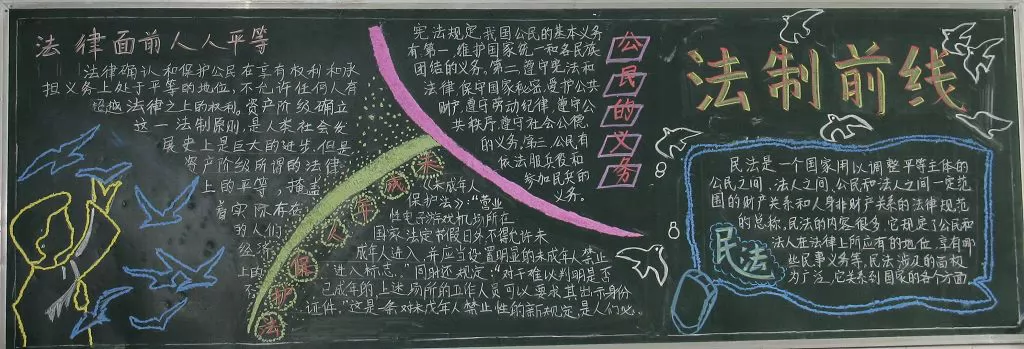 法律面前人人平等
法律确认和保护公民在享有权利和承
担义务上处于平等的地位,不允许任何人有
超越法律之上的权利。资产阶级确立
这一法制原则,是人类社会发
展史上是巨大的进步。但是
资产阶级所谓的法律
上的平等,掩盖
着实际有
的人们
经济
上的
不
宪法规定,我国公民的基本义务
有第一,维护国家统一和各民族
团结的义务。第二,遵守宪法和
法律,保守国家秘密,爱护公共
财产,遵守劳动纪律,遵守公
共秩序,遵守社会公德
的义务。第三,公民有
依法服兵役和
参加民兵的
义务。
公民的义务
未成年人保护法
《未成年人
保护法》:"营业
性电子游戏机场所在
国家法定节假日外不得允许未
成年人进入,并应当设置明显的未成年人禁止
进入标志。"同时还规定:"对于难以判明是否
已成年的,上述场所的工作人员可以要求其出示身份
证件。"这是一条对未成年人禁止性的新规定,是人们必
法制前线
民法是一个国家用以调整平等主体的
公民之间、法人之间、公民和法人之间一定范
围的财产关系和人身非财产关系的法律规范
的总称。民法的内容很多,它规定了公民和
法人在法律上所应有的地位,享有哪
些民事义务等,民法涉及的面极
为广泛,它关系到国家的各个方面
民法